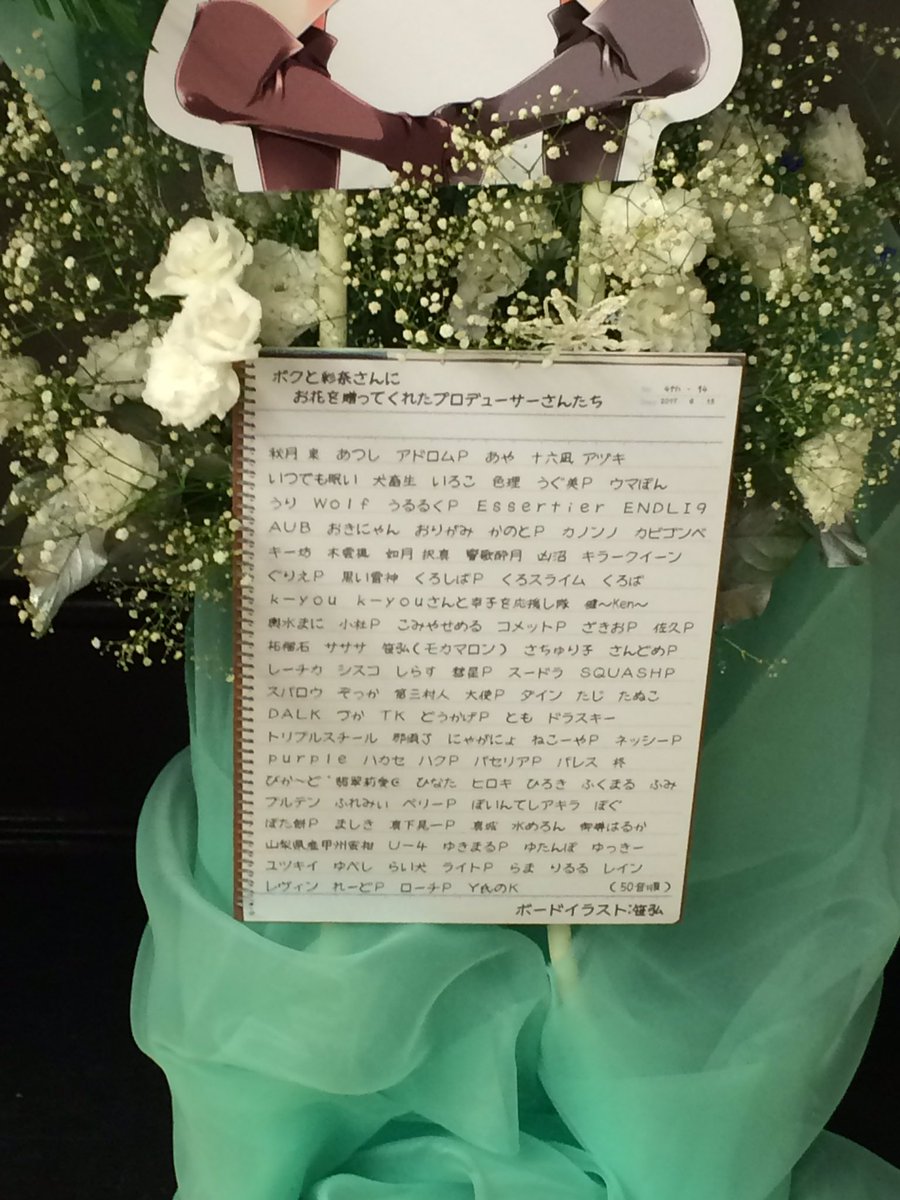 ボクと彩奈さんに
お花を贈ってくれたプロデューサーさんたち
4th・14
2017 6 15
秋月 東 あつし アドロムP あや 十六凪 アヅキ
いつでも眠い 犬畜生 いろこ 色理 うぐ美P ウマぽん
うり Wolf うるるくP Essertier ENDLI9
AUB おきにゃん おりがみ かのとP カノンノ カビゴンベ
キー坊 木雲楓 如月 択真 響歌酔月 凶沼 キラークイーン
ぐりえP 黒い雷神 くろしばP くるスライム くろば
k-you k-youさんと幸子を応援し隊 健〜Ken〜
輿水まに 小社P こみやせめる コメットP ざきおP 佐久P
柘榴石 ササササ 笹弘(モカマロン) さちゅり子 さんどめP
レーチカ シスコ しらす 彗星P スードラ SQUASHP
スパロウ ぞっか 第三村人 大使P ダイン たじ たぬこ
DALK づか TK どうかげP とも ドラスキー
トリプルスチール 那須了 にゃがにょ ねこーやP ネッシーP
purple ハカセ ハクP パセリアP パレス 柊
ぴか〜ど 翡翠莉愛G ひなた ヒロキ ひろき ふくまる ふみ
プルテン ふれみぃ ベリーP ぽいんてしアキラ ぽぐ
ぼた餅P ましき 真下晃一P 真成 水めろん 御巻はるか
山梨県産甲州蜜柑 U-4 ゆきまるP ゆたんぽ ゆっきー
ユヅキイ ゆべし らい犬 ライトP らま りるる レイン
レヴィン れーどP ローチP Y氏のK (50音順)
ボードイラスト:笹弘